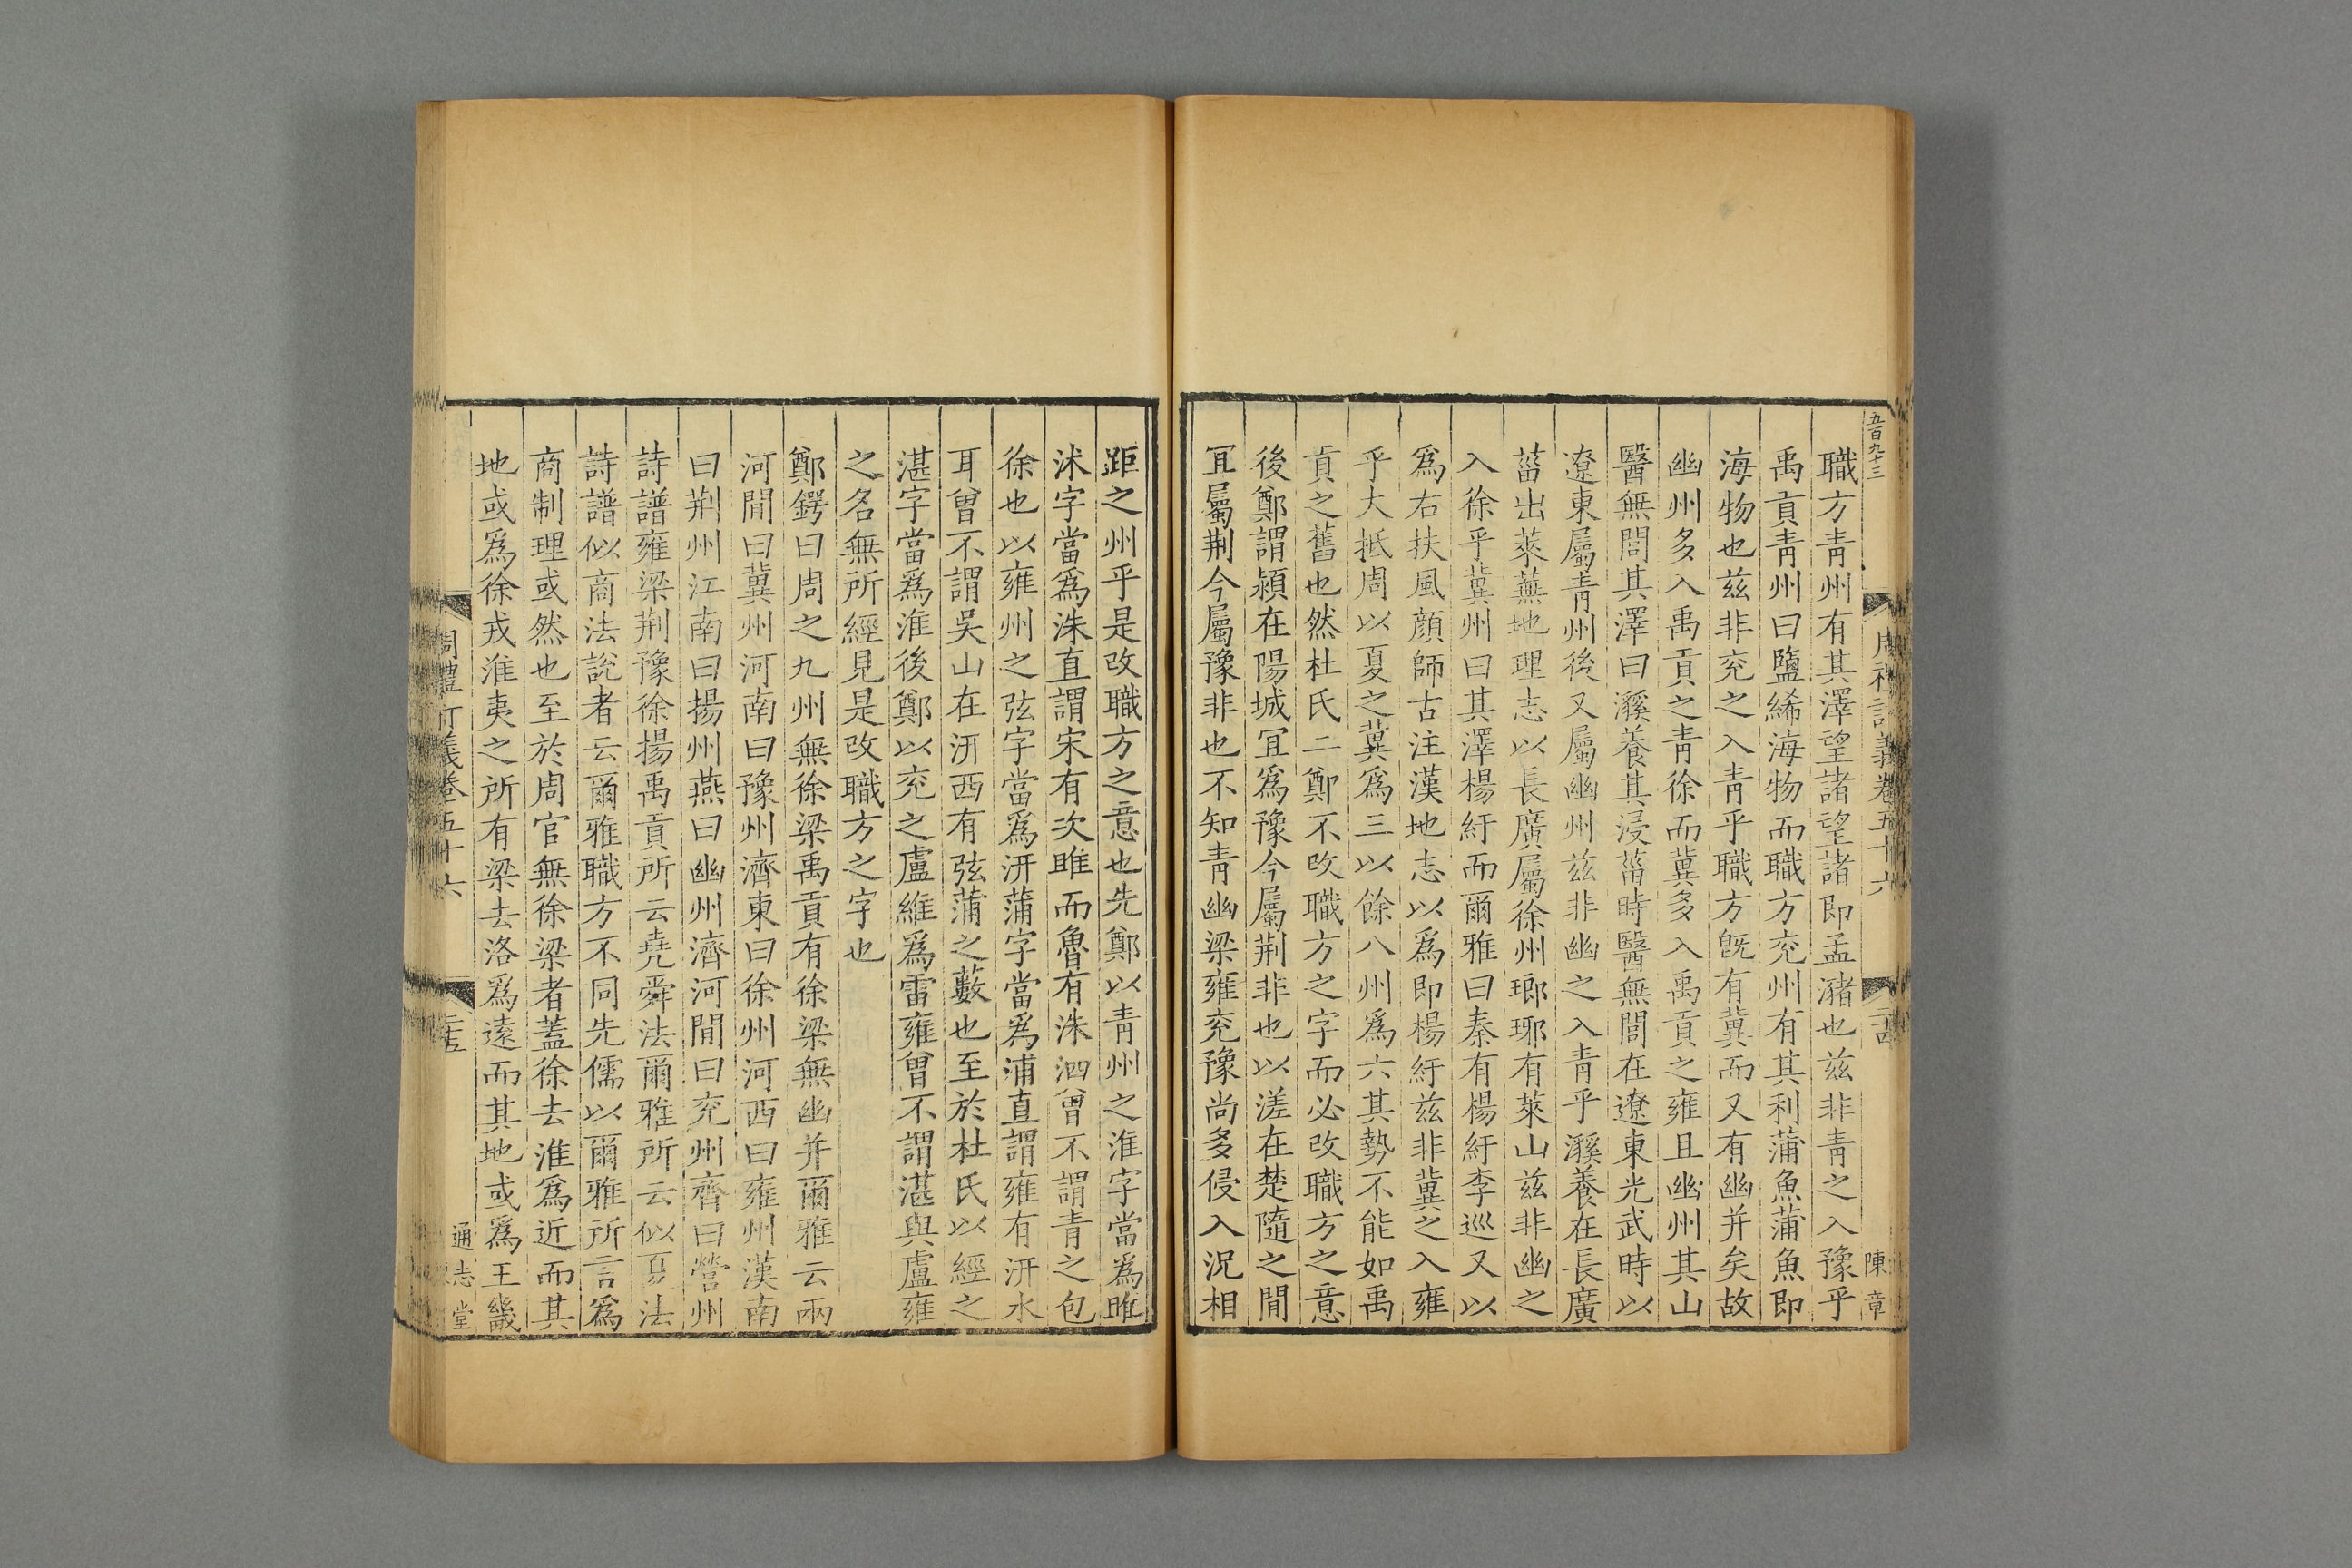 五百九十三
周禮訂義卷五十六
陳章
職方青州有其澤望諸望諸即孟瀦也兹非青之入豫乎
禹貢青州曰鹽絺海物而職方兖州有其利蒲魚蒲魚即
海物也兹非兖之入青乎職方旣有冀而又有幽并矣故
幽州多入禹貢之青徐而冀多入禹貢之雍且幽州其山
醫無閭其澤曰𧴩養其浸菑時醫無閭在遼東光武時以
遼東屬青州後又屬幽州兹非幽之入青乎𧴩養在長廣
菑出萊蕪地理志以長廣屬徐州瑯琊有萊山兹非幽之
入徐乎冀州曰其澤楊紆而爾雅曰秦有楊紆李巡又以
爲右扶風顔師古注漢地志以爲即楊紆兹非冀之入雍
乎大抵周以夏之冀爲三以餘八州爲六其勢不能如禹
貢之舊也然杜氏二鄭不改職方之字而必改職方之意
後鄭謂潁在陽城宜爲豫今屬荆非也以溠在楚隨之間
宜屬荆今屬豫非也不知青幽梁雍兖豫尚多侵入況相
距之州乎是改職方之意也先鄭以青州之淮字當爲睢
沭字當爲洙直謂宋有次睢而魯有洙泗曾不謂青之包
徐也以雍州之弦字當爲汧蒲字當爲浦直謂雍有汧水
耳曾不謂吳山在汧西有弦蒲之藪也至於杜氏以經之
湛字當爲淮後鄭以兖之盧維爲雷雍曾不謂湛與盧雍
之名無所經見是改職方之字也
鄭鍔曰周之九州無徐梁禹貢有徐梁無幽并爾雅云兩
河間曰冀州河南曰豫州濟東曰徐州河西曰雍州漢南
曰荆州江南曰揚州燕曰幽州濟河間曰兖州齊曰營州
詩譜雍梁荆豫徐揚禹貢所云堯舜法爾雅所云似夏法
詩譜似商法說者云爾雅職方不同先儒以爾雅所言爲
商制理或然也至於周官無徐梁者蓋徐去淮爲近而其
地或爲徐戎淮夷之所有梁去洛爲遠而其地或爲王畿
周禮訂義卷五十六
通志堂